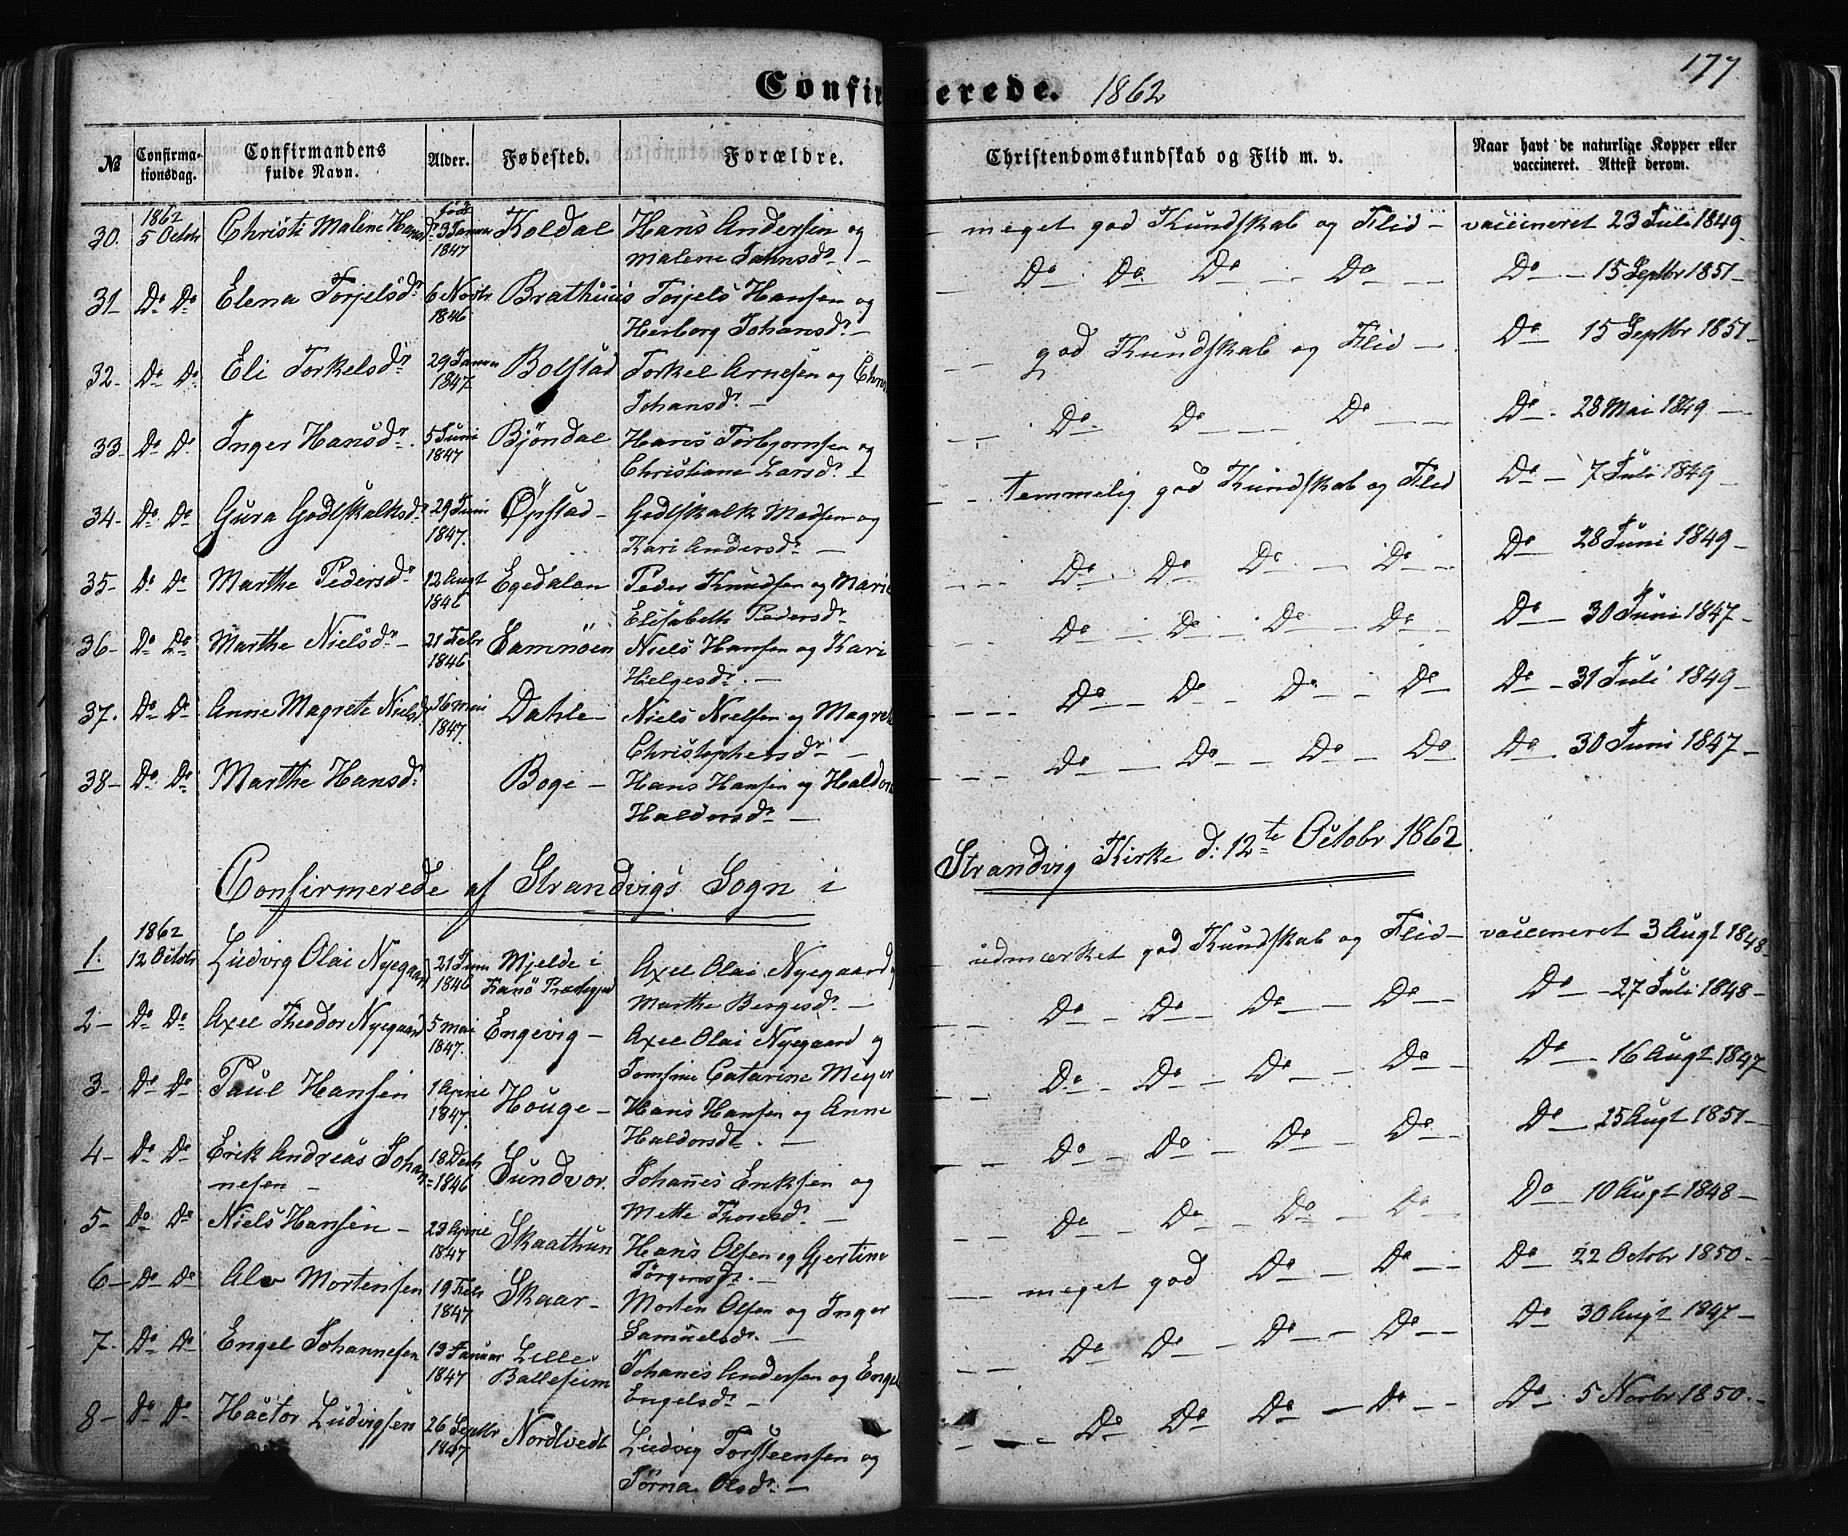 177.
Confirmerede. 1862
№ Confirmationsdag. Confirmandens fulde Navn. Alder. Fødested. Forældre. Christendomskundskab og Flid m. v. Naar havt de naturlige Kopper eller vaccineret. Attest derom.
30. 1862 5 Octobr Christi Malene Hansdr født 3 Januar 1847 Koldal Hans Andersen og — meget god Kundskab og Flid — vaccineret 23 Juli 1849
Malene Jahnsdr —
31 — Do Do Elena Torjelsdr 6 Novbr 1846 Brathuus Torjels Hansen og — Do Do Do Do Do — 15 Septbr 1851 —
Herborg Johansdr —
32 — Do Do Eli Torkelsdr 29 Januar 1847 Bolstad Torkel Arnesen og — god Kundskab og Flid — Do 15 Septbr 1851 —
Johansdr —
33 — Do Do Inger Hansdr 5 Juni 1847 Bjöndal Hans Torbjornsen og — Do Do Do Do — 28 Mai 1849 —
Christiane Larsdr —
34 — Do Do Gura Godtskalksdr 29 Juni 1847. Öpstad — Godtskalk Madsen og — temmelig god Kundskab og Flid Do — 7 Juli 1849 —
Kari Andersdr —
35 — Do Do Marthe Pedersdr 12 Augt 1846 Egedalen Peder Knudsen og Marie — Do Do Do Do Do — 28 Juni 1849 —
Elisabeth Pedersdr
36 — Do Do Marthe Nielsdr — 21 Febr 1846 Samnöen Niels Hansen og Kari — Do Do Do Do Do — 30 Juni 1847 —
Helgesdr. —
37. Do Do Anne Magrete Nielsdr 16 Mai 1847. Dahle — Niels Nielsen og Magrete — Do Do Do Do Do — 31 Juli 1849 —
Christophersdr —
38 — Do Do Marthe Hansdr Boge — Hans Hansen og — Do Do Do Do Do — 30 Juni 1847 —
Haldorsdr —
Confirmerede af Strandvigs Sogn i Strandvig Kirke d: 12te Octobr 1862.
1. 1862 12 Octobr Ludvig Olai Nyegaard 21 Juni 1846 Mjelde i Axel Olai Nyegaard og — udmærket god Kundskab og Flid — vaccineret 3 Augt 1848 —
Marthe Bergesdr —
2 — Do Do Axel Theodor Nyegaard 5 Mai 1847. Engevig — Axel Olai Nyegaard og — Do Do Do Do Do — 27 Juli 1848 —
Jomfrue Catarine Meyer
3 — Do Do Paul Hansen 1 Aprile 1847. Houge — Hans Hansen og Anne — Do Do Do Do Do — 16 Augt 1847
Haldorsdt. —
4 — Do Do Erik Andreas Johannesen — 18 Decbr 1846 Sundvor. Johanes Eriksen og — Do Do Do Do Do — 25 Augt 1851 —
Mette Thoresdr —
5 — Do Do Niels Hansen — 23 Aprile 1847 Skaathun Hans Olsen og Gjertine — Do Do Do Do Do — 10 Augt 1848 —
Jörgensdt. —
6 — Do Do Alv Mortensen 19 Febr 1847 Skaar — Morten Olsen og Inger — meget god Do Do Do — 22 Octobr 1850 —
Samuelsdr. —
7 — Do Do Engel Johannesen 13 Januar 1847 Lille Balleseim Johanes Andersen og Engel — Do Do Do Do Do — 30 Augt 1847 —
Engelsdr —
8 — Do Do Hactor Ludvigsen 26 Septbr 1847 Nordtvedt Ludvig Torsteensen og — Do Do Do Do Do — 5 Novbr 1850. —
Jörna Olsdr —